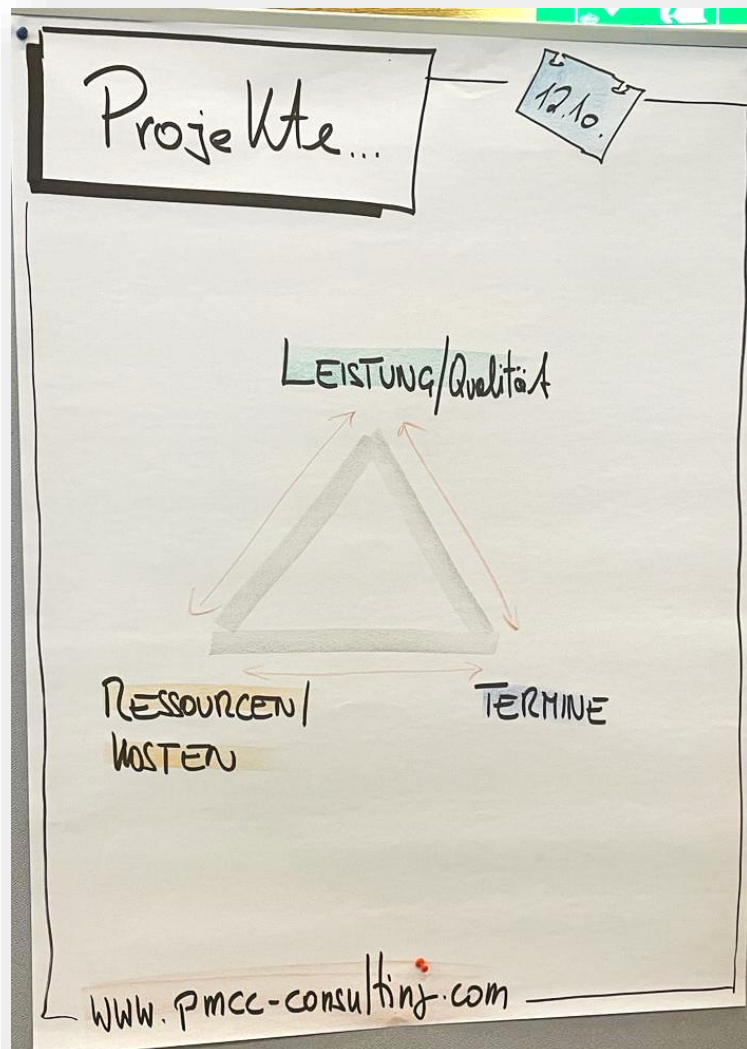 Projekte...
12.10.
LEISTUNG/Qualität
RESSOURCEN/
KOSTEN
TERMINE
www.pmcc-consulting.com